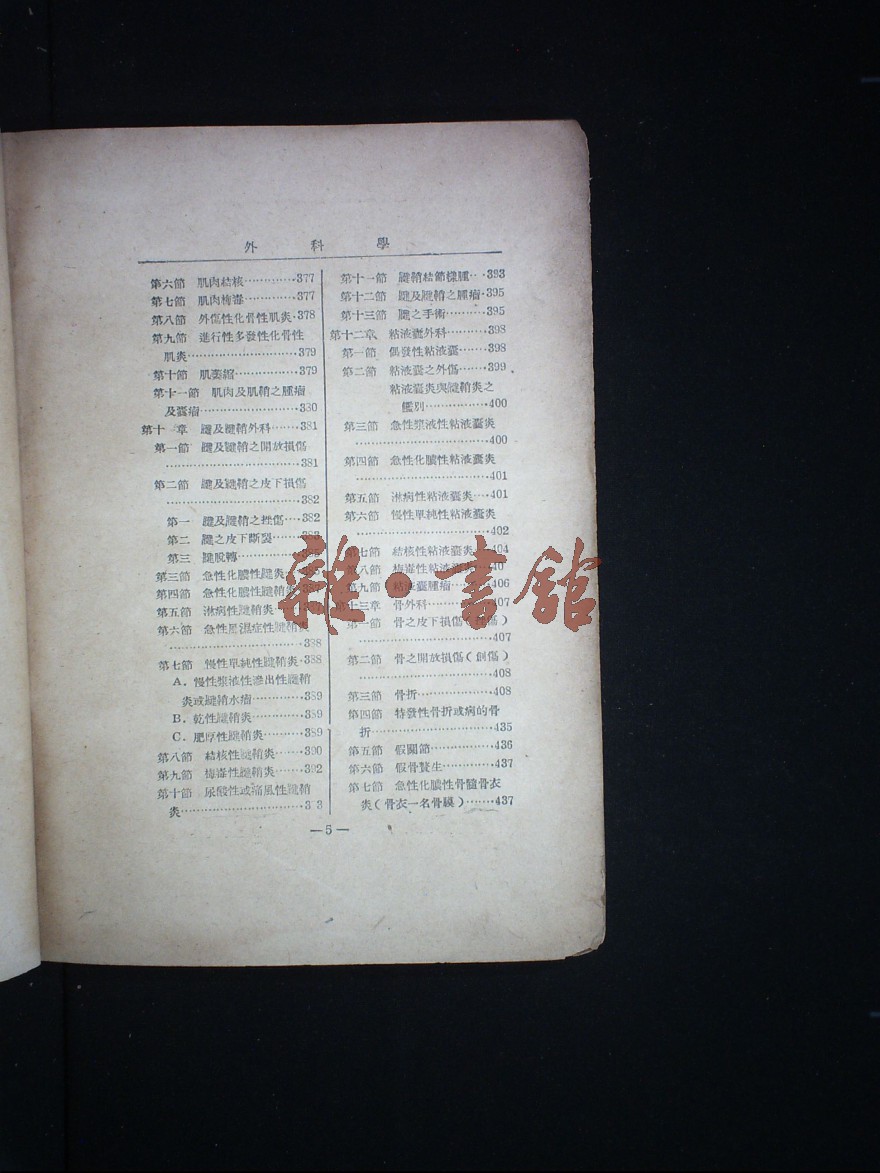 外科學
第六節 肌肉結核…………377
第七節 肌肉梅毒…………377
第八節 外傷性化骨性肌炎·378
第九節 進行性多發性化骨性
肌炎……………………379
第十節 肌萎縮……………379
第十一節 肌肉及肌鞘之腫瘤
及囊瘤……………………380
第十一章 腱及腱鞘外科……381
第一節 腱及腱鞘之開放損傷
……………………………381
第二節 腱及腱鞘之皮下損傷
……………………………382
第一 腱及腱鞘之挫傷…382
第二 腱之皮下斷裂……
第三 腱脫轉
第三節 急性化膿性腱炎
第四節 急性化膿性腱鞘炎
第五節 淋病性腱鞘炎
第六節 急性風濕症性腱鞘炎
……………………………388
第七節 慢性單純性腱鞘炎·388
A．慢性漿液性滲出性腱鞘
炎或腱鞘水瘤…………389
B．乾性腱鞘炎…………389
C．肥厚性腱鞘炎………389
第八節 結核性腱鞘炎……390
第九節 梅毒性腱鞘炎……392
第十節 尿酸性或痛風性腱鞘
炎…………………………
第十一節 腱鞘結節樣腫…393
第十二節 腱及腱鞘之腫瘤·395
第十三節 腱之手術………395
第十二章 粘液囊外科………398
第一節 偶發性粘液囊……398
第二節 粘液囊之外傷……399
粘液囊炎與腱鞘炎之
鑑別……………400
第三節 急性漿液性粘液囊炎
……………………………400
第四節 急性化膿性粘液囊炎
……………………………401
第五節 淋病性粘液囊炎…401
第六節 慢性單純性粘液囊炎
……………………………402
第七節 結核性粘液囊炎…404
第八節 梅毒性粘液囊炎
第九節 粘液囊腫瘤………406
第十三章 骨外科…………407
第一節 骨之皮下損傷(挫傷)
……………………………407
第二節 骨之開放損傷(創傷)
……………………………408
第三節 骨折………………408
第四節 特發性骨折或病的骨
折…………………………435
第五節 假關節……………436
第六節 假骨贅生…………437
第七節 急性化膿性骨髓骨衣
炎(骨衣一名骨膜)……437
—5—
雜·書館